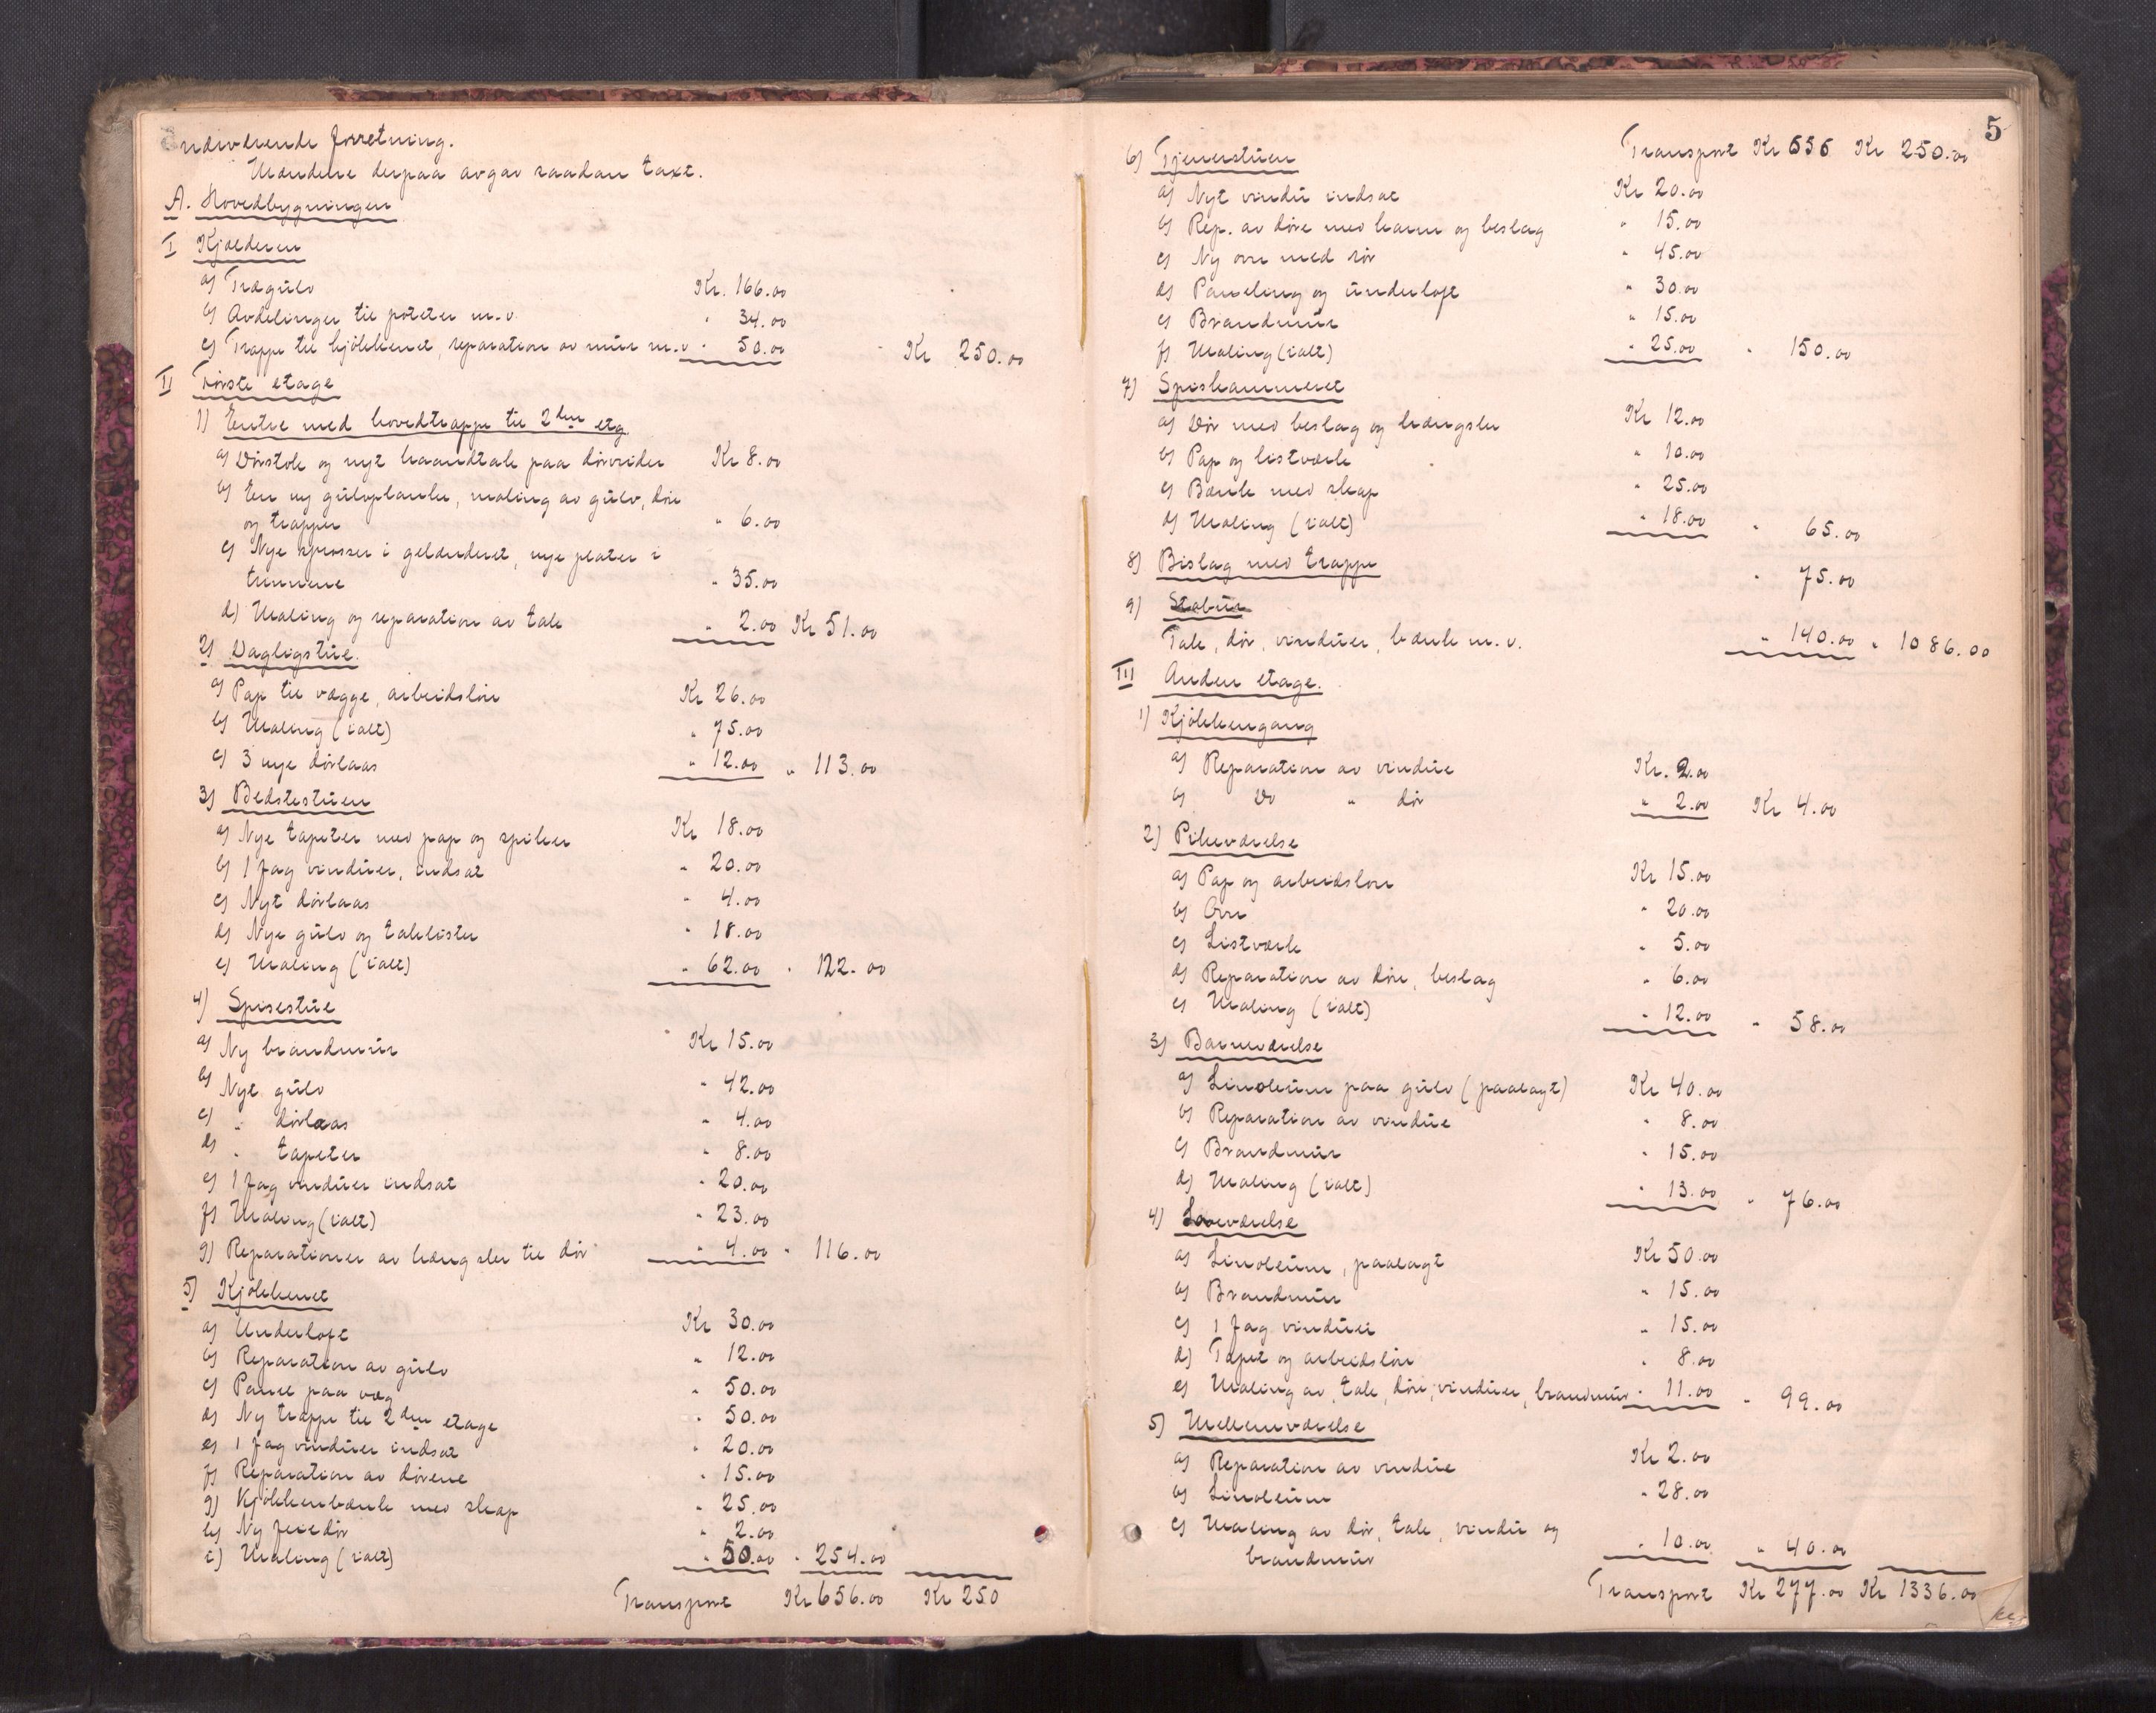 indværende forretning.
Mændene derpaa avgav saadan taxt.
A. Hovedbygningen
I Kjælderen
a) Trægulv Kr. 166.00
b) Avdelinger til poteter m.v. " 34.00
c) Trappe til kjøkkenet, reparation av mur m.v. " 50.00 Kr 250.00
II Første etage
1) Entre med hovedtrappe til 2den etg.
a) Dørstok og nyt haandtak paa dørvrider Kr 8.00
b) En ny gulvplanke, maling av gulv, dør
og trapper " 6.00
c) Nye sprosser i gelænderet, nye plater i
trinnene " 35.00
d) Maling og reparation av tak " 2.00 Kr 51.00
2) Dagligstue.
a) Pap til vægge, arbeidsløn Kr 26.00
b) Maling (ialt) " 75.00
c) 3 nye dørlaas " 12.00 " 113.00
3) Bedstestuen
a) Nye tapeter med pap og spiker Kr 18.00
b) 1 fag vinduer, indsat " 20.00
c) Nyt dørlaas " 4.00
d) Nye gulv og taklister " 18.00
e) Maling (ialt) " 62.00 " 122.00
4) Spisestue
a) Ny brandmur Kr 15.00
b) Nyt gulv " 42.00
c) " dørlaas " 4.00
d) " tapeter " 8.00
e) 1 fag vinduer indsat " 20.00
f) Maling (ialt) " 23.00
g) Reparationer av hængsler til dør " 4.00 " 116.00
5) Kjøkkenet
a) Underloft Kr 30.00
b) Reparation av gulv " 12.00
c) Panel paa væg " 50.00
d) Ny trappe til 2den etage " 50.00
e) 1 fag vinduer indsat " 20.00
f) Reparation av dørene " 15.00
g) Kjøkkenbænk med skap " 25.00
h) Ny feiedør " 2.00
i) Maling (ialt) " 50.00 " 254.00
Transport Kr 656.00 Kr 250
5
Transport Kr 656 Kr 250.00
6) Tjenerstuen
a) Nyt vindu indsat Kr 20.00
b) Rep. av døre med karm og beslag " 15.00
c) Ny ovn med rør " 45.00
d) Paneling og underloft " 30.00
e) Brandmur " 15.00
f) Maling (ialt) " 25.00 " 150.00
7) Spiskammeret
a) Dør med beslag og hængsler Kr 12.00
b) Pap og listverk " 10.00
c) Bænk med skap " 25.00
d) Maling (ialt) " 18.00 " 65.00
8) Bislag med trappe " 75.00
9) Stabur
Tak, dør, vinduer, bænk m.v. " 140.00 " 1086.00
III Anden etage.
1) Kjøkkengang
a) Reparation av vindue Kr. 2.00
b) Do " dør " 2.00 Kr 4.00
2) Pikeværelse
a) Pap og arbeidsløn Kr 15.00
b) Ovn " 20.00
c) Listværk " 5.00
d) Reparation av dør, beslag " 6.00
e) Maling (ialt) " 12.00 " 58.00
3) Barneværelse
a) Linoleum paa gulv (paalagt) Kr 40.00
b) Reparation av vindue " 8.00
c) Brandmur " 15.00
d) Maling (ialt) " 13.00 " 76.00
4) Soveværelse
a) Linoleum, paalagt Kr 50.00
b) Brandmur " 15.00
c) 1 fag vinduer " 15.00
d) Tapet og arbeidsløn " 8.00
e) Maling av tak, dør, vinduer, brandmur " 11.00 " 99.00
5) Mellemværelse
a) Reparation av vindue Kr 2.00
b) Linoleum " 28.00
c) Maling av dør, tak, vindu og
brandmur " 10.00 " 40.00
Transport Kr 277.00 Kr 1336.00